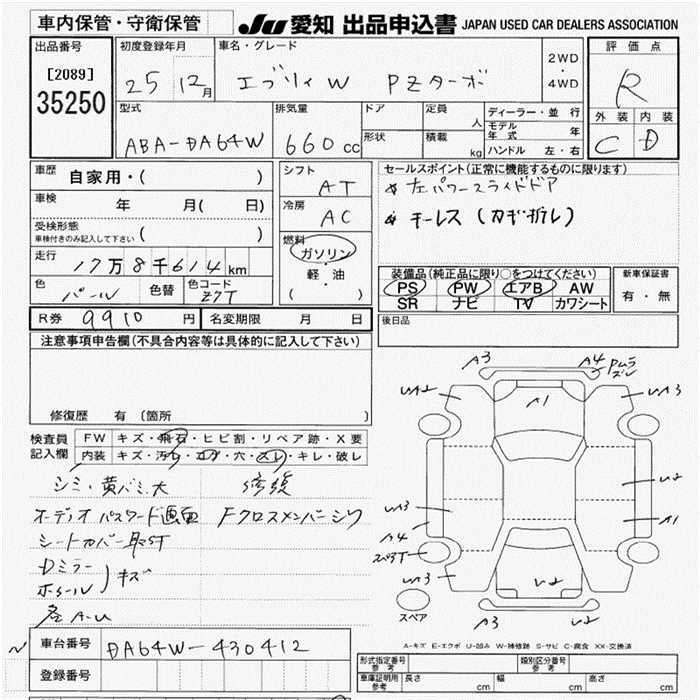 車内保管・守衛保管 JU 愛知 出品申込書 JAPAN USED CAR DEALERS ASSOCIATION
出品番号 初度登録年月 車名・グレード 評価点
[2089] 25 12月 エブリィW PZターボ 2WD・4WD R
35250 型式 排気量 ドア 定員 人 ディーラー・並行 外装 内装
ABA-DA64W 660cc 形状 積載 kg モデル年式 年 C D
ハンドル 左・右
車歴 自家用・( ) シフト AT セールスポイント(正常に機能するものに限ります)
左パワースライドドア
車検 年 月( 日) 冷房 AC キーレス(カギ折レ)
受検形態 ( )
車検付きのみ記入して下さい
燃料 ガソリン・軽・油 ( )
走行 17万8千614km
装備品(純正品に限り○をつけてください) 新車保証書
色 パール 色替 色コード Z7T PS PW エアB AW 有・無
SR ナビ TV カワシート
R券 9910円 名変期限 月 日 後日品
注意事項申告欄(不具合内容等は具体的に記入して下さい)
修復歴 有 (箇所 )
検査員記入欄 FW キズ・飛石・ヒビ割・リペア跡・X要
内装 キズ・汚レ・コゲ・穴・スレ・キレ・破レ
シミ・黄バミ大 修復
オーディオパスワード画面 Fクロスメンバーシワ
シートカバー取ST
Dミラー
ホイール ) キズ
各A-U
A3 A4
UA2 A1 UA3
UA3 U2
A4 A1
UA3 U2
A3 U2
スペア
A-キズ E-エクボ U-凹み W-補修跡 S-サビ C-腐食 XX-交換済
車台番号 DA64W-430412
登録番号
形式指定番号 参考 類別区分番号 参考
車庫証明用 参考 長さ cm 幅 cm 高さ cm